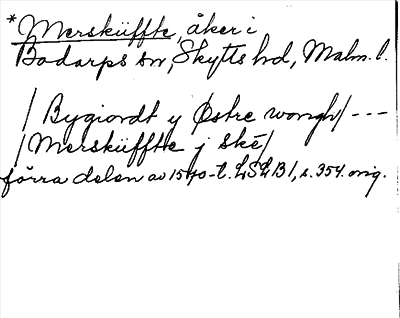 *Merskiiffte, åker i
Bodarps sn, Skytts hd, Malm. l.
/ Bygiordt y Østre wongh / ---
/ Merskiiffte j ské /
förra delen av 1540-t. LSLB 1, s. 354. orig.